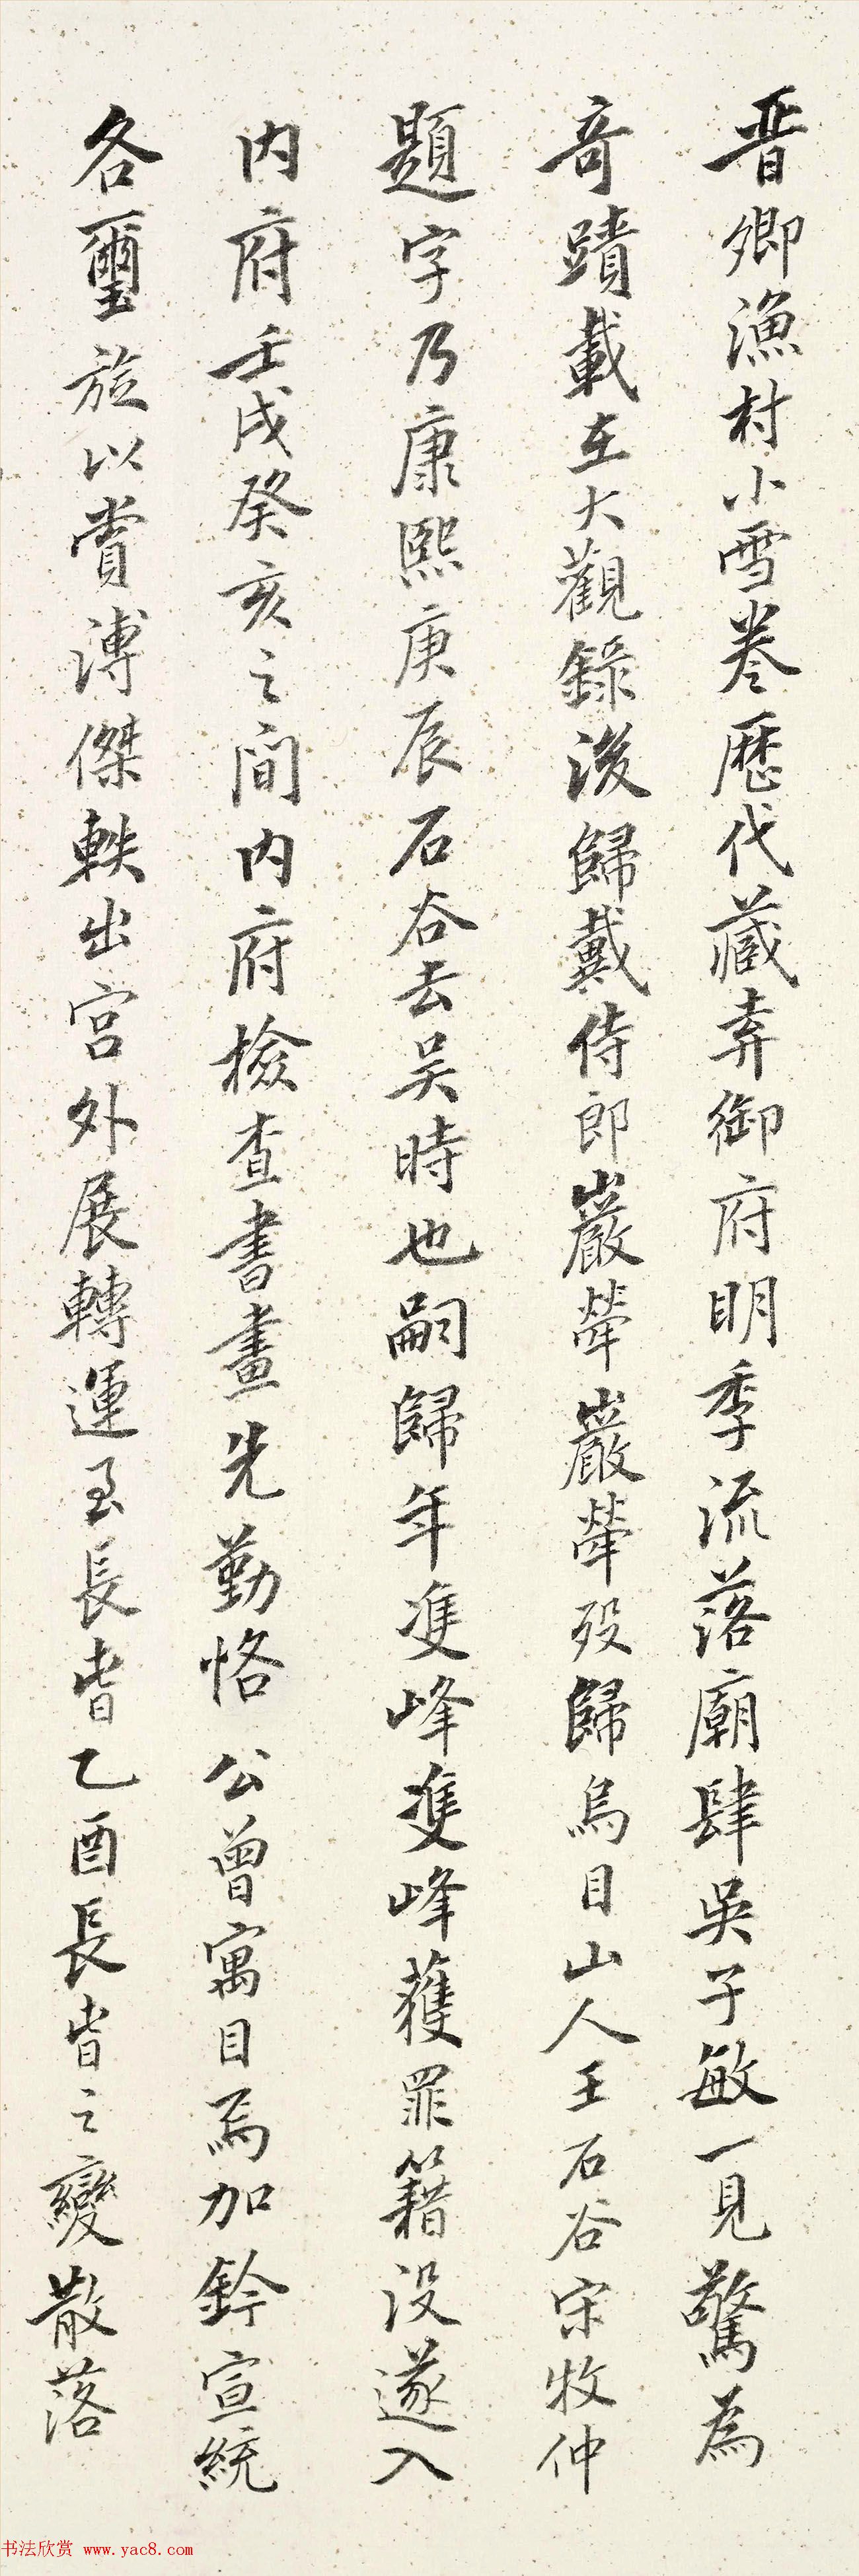 晋卿漁村小雪卷歷代藏弆御府明季流落廟肆吳子敏一見驚為
奇蹟載在大觀錄後歸戴侍郎巖犖巖犖歿歸烏目山人王石谷宋牧仲
題字乃康熙庚辰石谷去吴時也嗣歸年雙峰雙峰獲罪籍没遂入
内府壬戌癸亥之間内府檢查書畫先勤恪公曾寓目焉加鈐宣統
各璽旋以賞溥傑軼出宫外展轉運至長春乙酉長春之變散落
书法欣赏 www.yac8.com